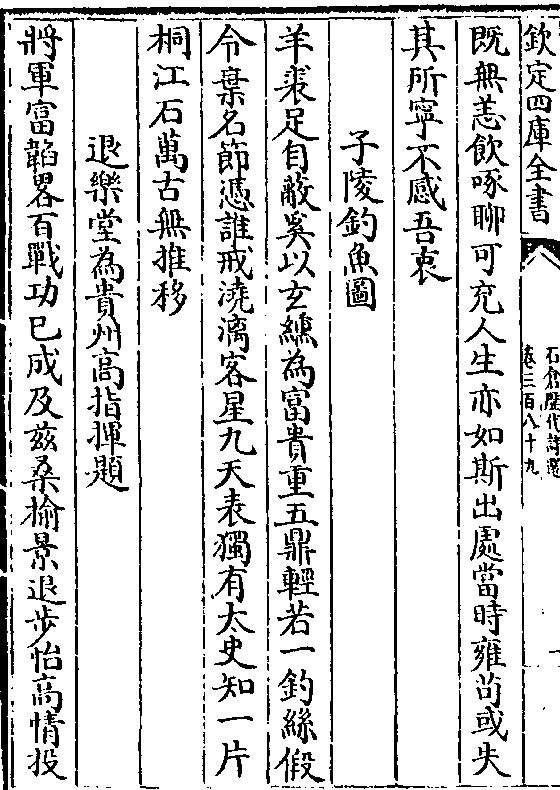 欽定四庫全書
石倉歷代詩選
卷三百八十九
既無恙飲啄聊可充人生亦如斯出處當時雍苟或失
其所寧不感吾衷
子陵釣魚圖
羊裘足自蔽奚以玄纁為富貴重五鼎輕若一釣絲假
令棄名節憑誰戒澆漓客星九天表獨有太史知一片
桐江石萬古無推移
退樂堂為貴州高指揮題
將軍富韜畧百戰功已成及兹桑榆景退步怡高情投